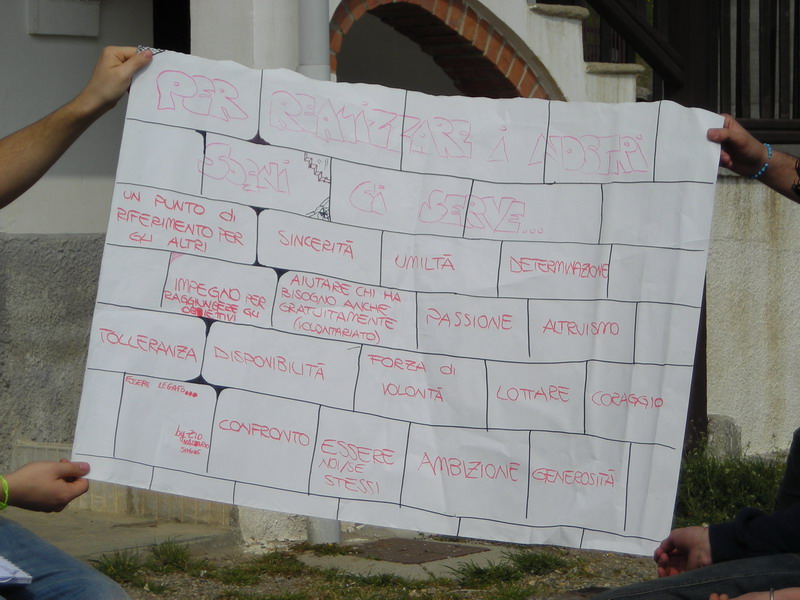 PER REALIZZARE i NOSTRI
SOGNI Ci SERVE...
UN PUNTO di
RIFERIMENTO PER
GLI ALTRI
SINCERITÀ
UMILTÀ
DETERMINAZIONE
IMPEGNO PER
RAGGIUNGERE GLI
OBIETTIVI
AIUTARE CHI HA
BISOGNO ANCHE
GRATUITAMENTE
(VOLONTARIATO)
PASSIONE
ALTRUISMO
TOLLERANZA
DISPONIBILITÀ
FORZA di
VOLONTÀ
LOTTARE
CORAGGIO
ESSERE
by ZIO
CONFRONTO
ESSERE
NOI SE
STESSI
AMBIZIONE
GENEROSITÀ